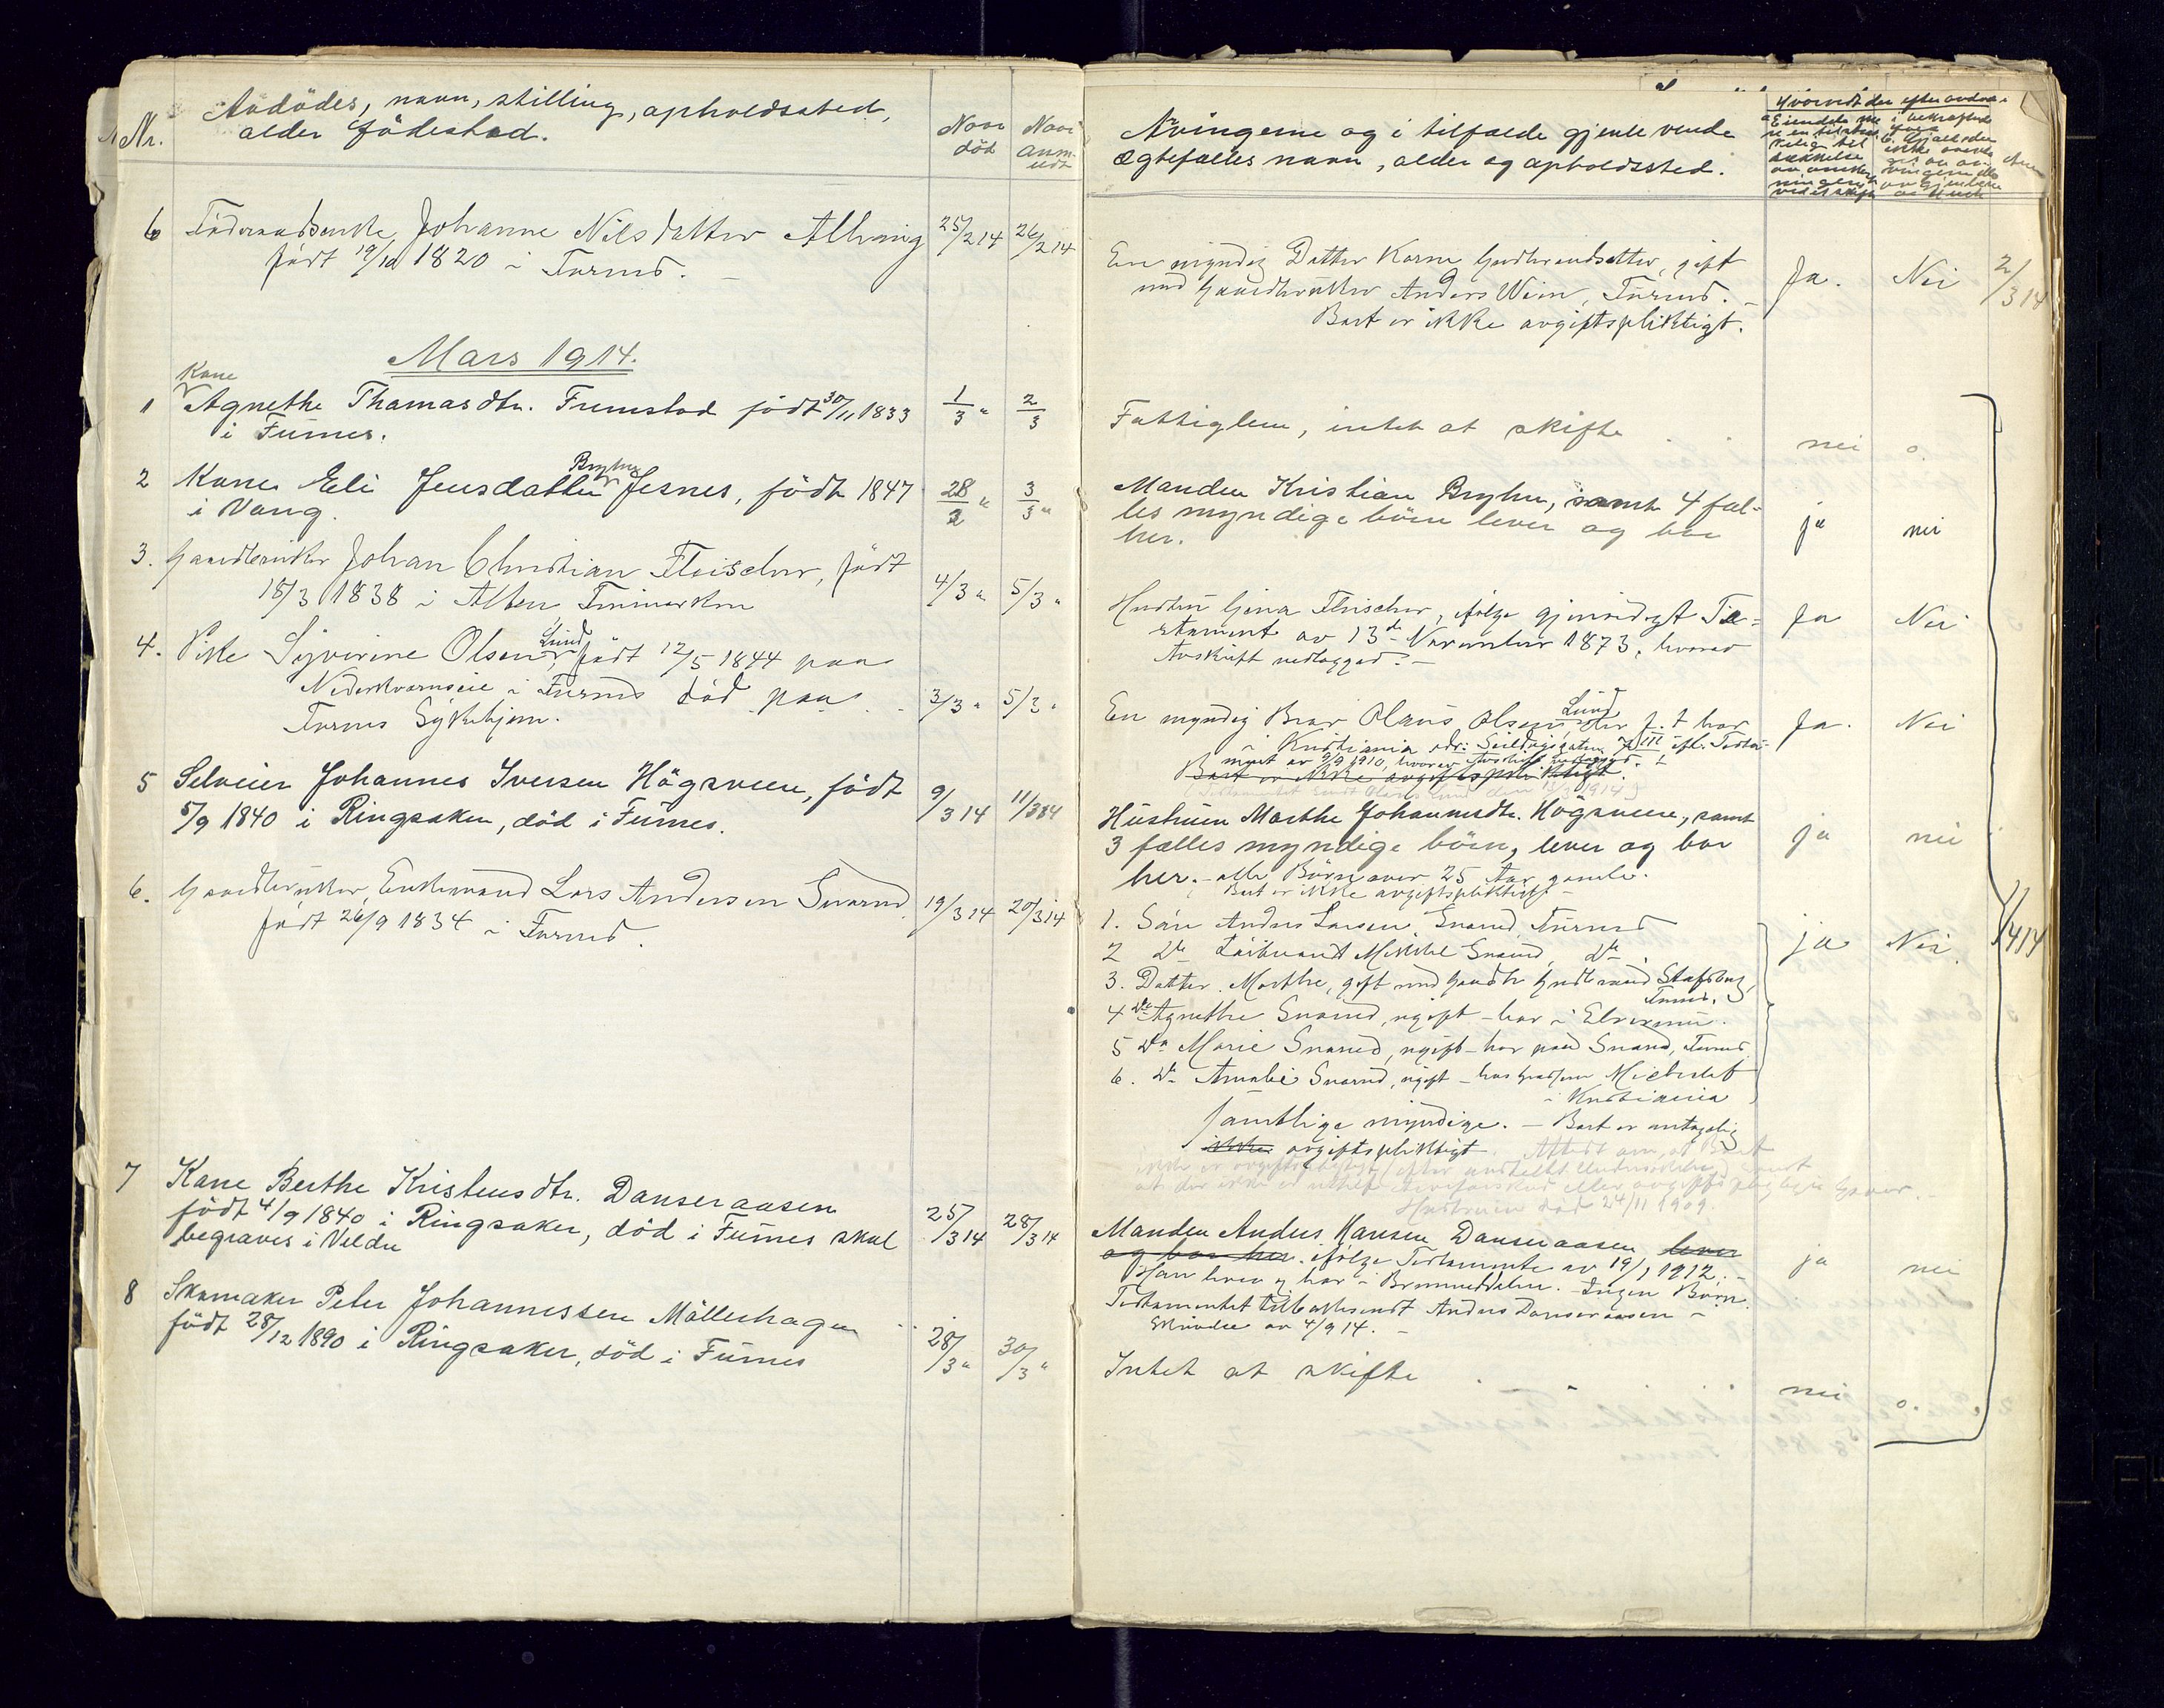 Nr.
Avdödes, navn, stilling, opholdssted,
alder födested.
Naar
död
Naar
anm
eldt
6 Föderaadsenke Johanne Nilsdatter Alhaug 25/2 14 26/2 14
födt 19/10 1820 i Furnes. –
Mars 1914.
Kone
1 Agnethe Thomasdtr. Fremstad födt 30/11 1833 1/3 " 2/3
i Furnes.
Bryhn
2 Kone Eli Jensdatter Jesnes, födt 1847 28/2 " 3/3 "
i Vang
3. Gaardbruker Johan Christian Fleischer, født 4/3 " 5/3 "
18/3 1838 i Alten Finmarken
Lund
4. Pike Syverine Olsen, født 12/5 1844 paa
Nederkvernseie i Furnes død paa 3/3 " 5/3 "
Furnes Sykehjem.
5 Selveier Johannes Iversen Högsveen, födt 9/3 14 11/3 14
5/9 1840 i Ringsaker, död i Furnes.
6. Gaardbruker, Enkemand Lars Andersen Snared 19/3 14 20/3 14
født 26/9 1834 i Furnes.
7 Kone Berthe Kristensdtr. Danseraasen
födt 4/9 1840 i Ringsaker, död i Furnes skal 25/3 14 28/3 14
begraves i Veldre
8 Skomaker Peter Johannessen Möllerhagen
födt 28/12 1890 i Ringsaker, död i Furnes 28/3 " 30/3 "
Arvingerne og i tilfælde gjenlevende
Ægtefælles navn, alder og opholdssted.
Hvorvidt der efter avdøde
En myndig Datter Karen Gudbrandsdatter, gift
med Gaardbruker Anders Wien, Furnes. – Ja. Nei 2/3 14
Boet er ikke avgiftspliktigt.
Fattiglem, intet at skifte nei o.
Manden Kristian Bryhn, samt 4 fæl-
les myndige börn lever og bor ja nei
her.
Hustru Gina Fleischer, ifølge gjensidigt Te- Ja Nei
stament av 13de November 1873, hvorav
Avskrift vedlægges. –
Lund
En myndig Bror Olaus Olsen der f. t. bor Ja. Nei
i Kristiania adr: Seildugsgaten 7 III efl. Testa-
ment av 9/9 1910, hvorav Avskrift vedlægges.
Boet er ikke avgiftspliktigt.
Hustruen Marthe Johannesdtr. Högsveen, samt
3 fælles myndige börn, lever og bor ja nei
her. – alle Börn over 25 Aar gamle.
Boet er ikke avgiftspliktigt –
1. Søn Anders Larsen Snared, Furnes
2 do Løitnant Mikkel Snared, do. ja Nei. 1/4 14
3. Datter. Marthe, gift med Gaardbr Gudbrand Stafsberg,
Furnes.
4 do Agnethe Snared, ugift – bor i Elverum.
5 do Marie Snared, ugift – bor paa Snared, Furnes
6. do Amalie Snared, ugift – hos
i Kristiania
samtlige myndige. – Boet er antagelig
ikke avgiftspliktigt.
Hustruen død 24/11 1909.
Manden Anders Hansen Danseraasen, lever
og bor her. ifølge Testamente av 19/1 1912. – ja nei
Han lever og bor i Brummeddalen. Ingen Børn.
Testamentet tilbakesendt Anders Danseraasen –
Skrivelse av 4/9 14. –
Intet at skifte nei o.